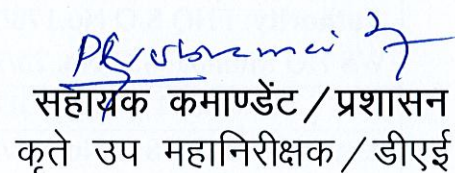 सहायक कमाण्डेंट / प्रशासन
कृते उप महानिरीक्षक / डीएई